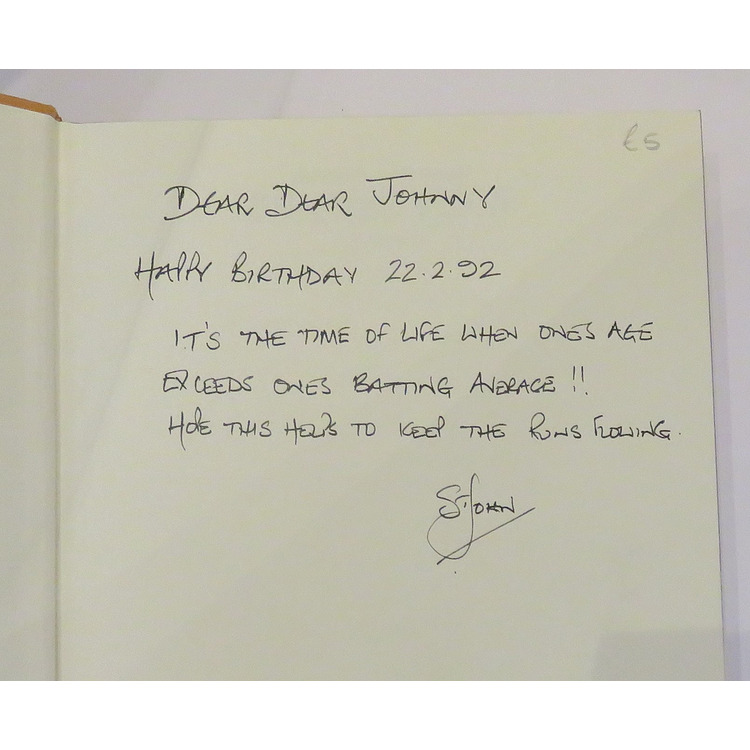 £5
DEAR DEAR JOHNNY
HAPPY BIRTHDAY 22.2.92
IT'S THE TIME OF LIFE WHEN ONE'S AGE
EXCEEDS ONE'S BATTING AVERAGE !!
HOPE THIS HELPS TO KEEP THE RUNS FLOWING.
ST. JOHN